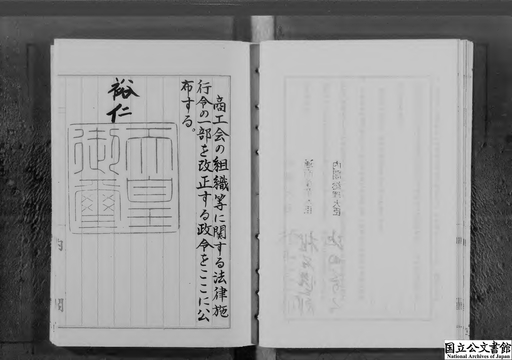 商工会の組織等に関する法律施
行令の一部を改正する政令をここに公
布する。
裕仁
天皇
御璽
内閣総理大臣
国立公文書館
National Archives of Japan